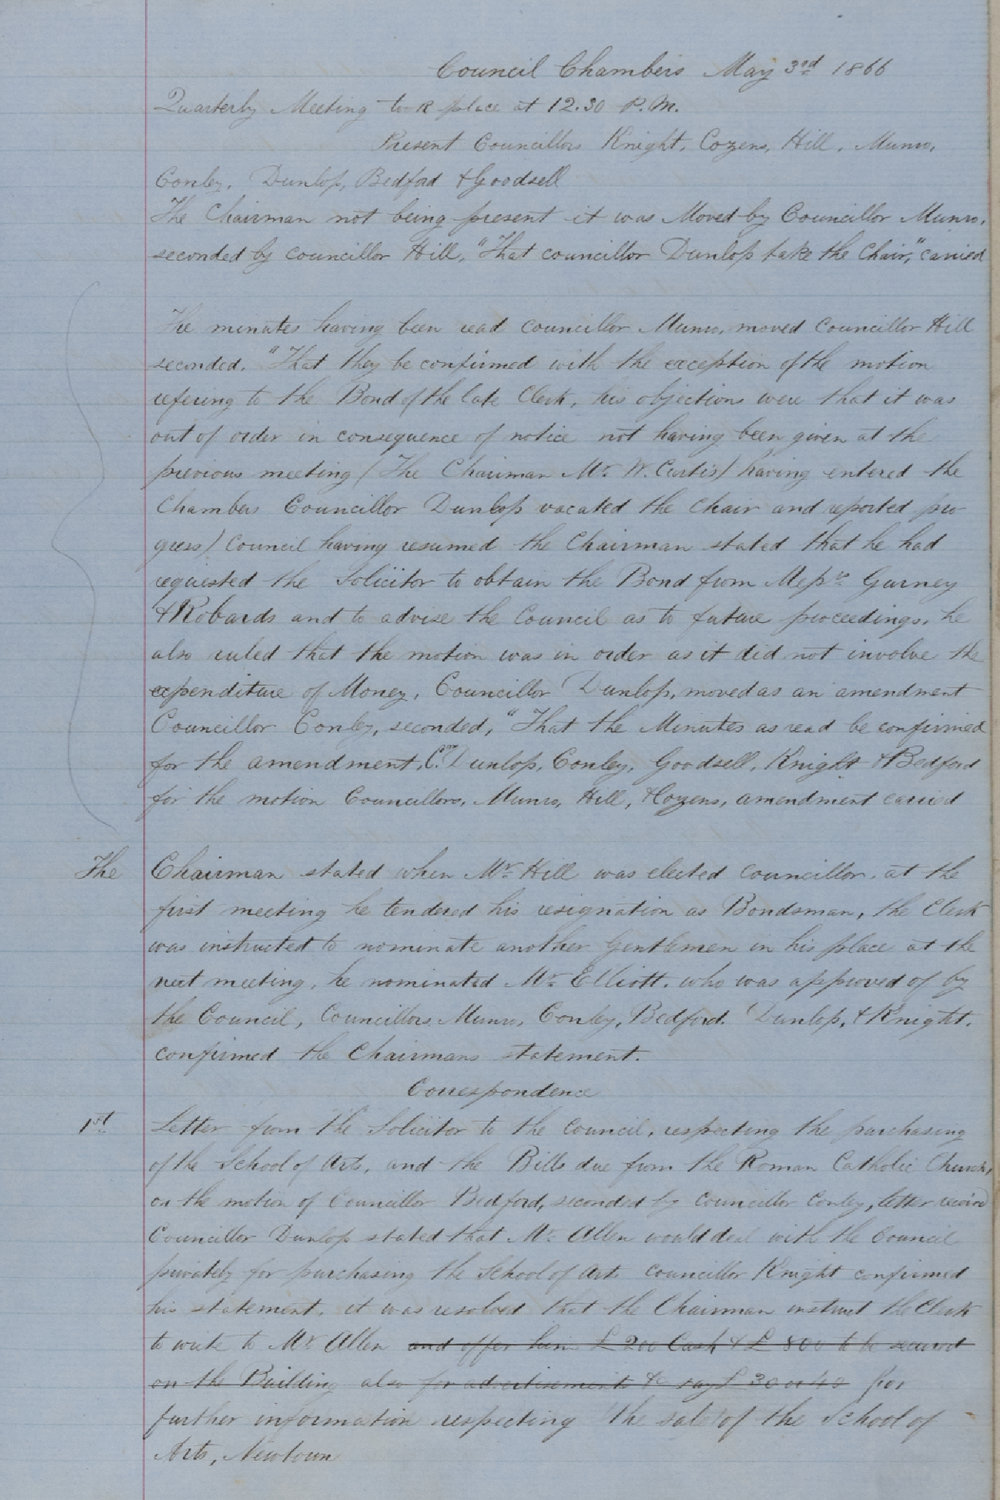 Council Chambers May 3rd 1866
Quarterly Meeting to R place at 12.30 P.M.
Present Councillors Knight, Cozens, Hill, Munro,
Conley, Dunlop, Bedford & Goodsell
The Chairman not being present it was Moved by Councillor Munro,
seconded by councillor Hill, "That councillor Dunlop take the Chair," carried
The minutes having been read councillor Munro, moved Councillor Hill
seconded. "That they be confirmed with the exception of the motion
refering to the Bond of the late Clerk, his objections were that it was
out of order in consequence of notice not having been given at the
previous meeting / The Chairman Mr. W. Curtis / having entered the
Chamber Councillor Dunlop vacated the Chair and reported pro-
gress / Council having resumed the Chairman stated that he had
requested the Solicitor to obtain the Bond from Messrs Gurney
& Robards and to advise the Council as to future proceedings, he
also ruled that the motion was in order as it did not involve the
expenditure of Money, Councillor Dunlop, moved as an amendment
Councillor Conley, seconded, "That the Minutes as read be confirmed
for the amendment, Crs Dunlop, Conley, Goodsell, Knight & Bedford
for the motion Councillors, Munro, Hill, & Cozens, amendment carried
The Chairman stated when Mr Hill was elected councillor, at the
first meeting he tendered his resignation as Bondsman, the Clerk
was instructed to nominate another Gentlemen in his place at the
next meeting, he nominated Mr Elliott. who was approved of by
the Council, Councillors Munro, Conley, Bedford. Dunlop, & Knight.
confirmed the Chairmans statement.
Correspondence
1st Letter from the Solicitor to the Council, respecting the purchasing
of the School of Arts, and the Bills due from the Roman Catholic Church,
on the motion of Councillor Bedford, seconded by Councillor Conley, letter receivd
Councillor Dunlop stated that Mr. Allen would deal with the Council
privately for purchasing the School of Arts Councillor Knight confirmed
his statement, it was resolved that the Chairman instruct the Clerk
to write to Mr Allen and offer him £200 Cash & £ 800 to be secured
on the Building also for advertisements & say £ 30 or 40 for
further information respecting the sale of the School of
Arts, Newtown